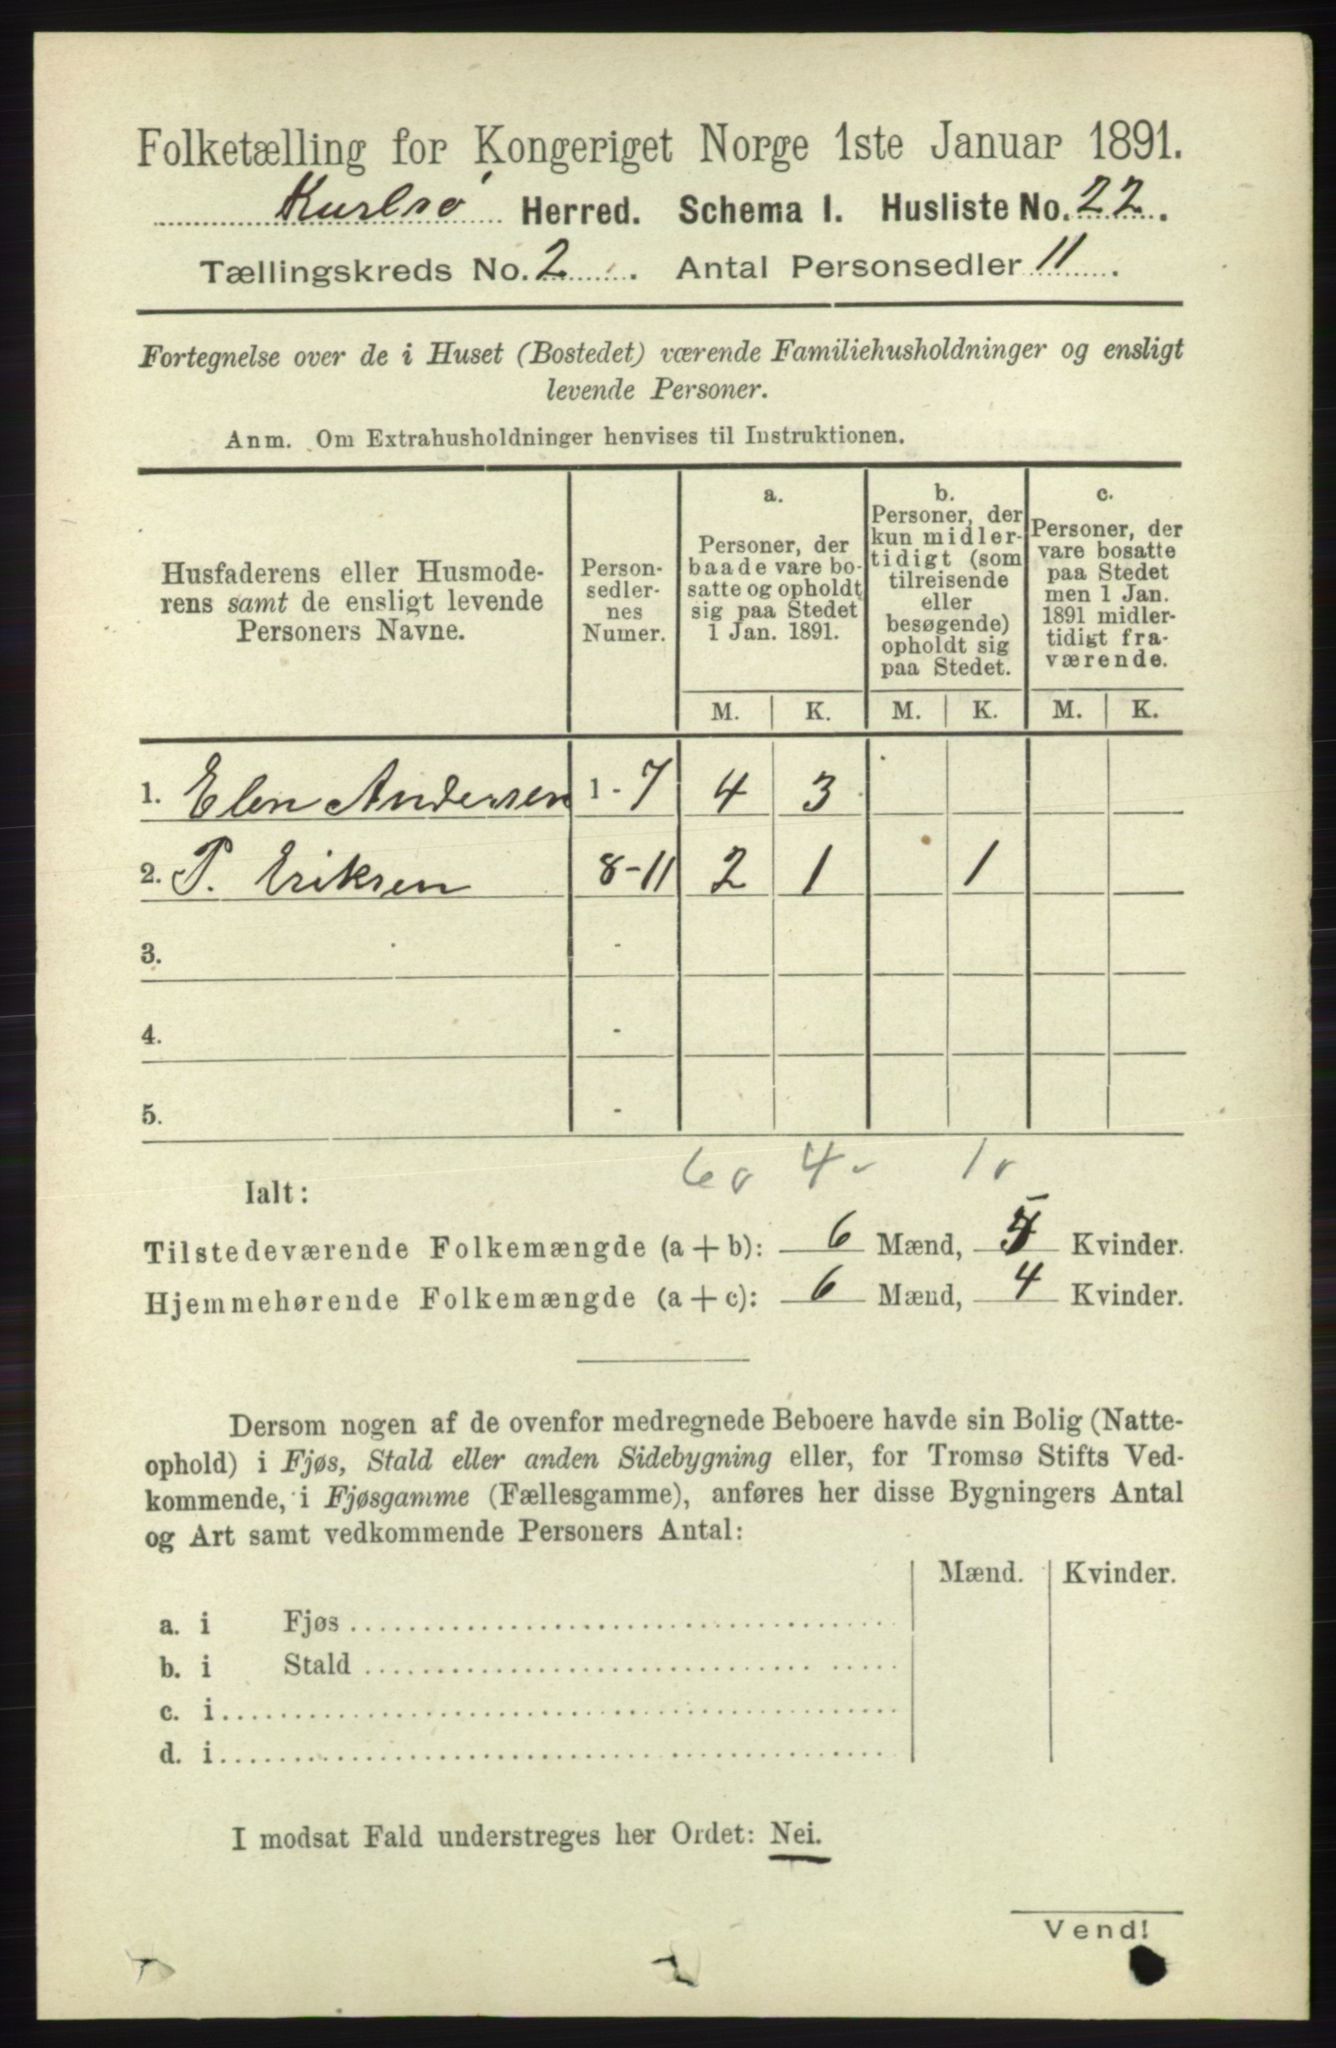 Folketælling for Kongeriget Norge 1ste Januar 1891.
Karlsø Herred. Schema I. Husliste No. 22.
Tællingskreds No. 2. Antal Personsedler 11.
Fortegnelse over de i Huset (Bostedet) værende Familiehusholdninger og ensligt
levende Personer.
Anm. Om Extrahusholdninger henvises til Instruktionen.
Husfaderens eller Husmode-
rens samt de ensligt levende
Personers Navne.
Person-
sedler-
nes
Numer.
a.
Personer, der
baade vare bo-
satte og opholdt
sig paa Stedet
1 Jan. 1891.
b.
Personer, der
kun midler-
tidigt (som
tilreisende
eller
besøgende)
opholdt sig
paa Stedet.
c.
Personer, der
vare bosatte
paa Stedet
men 1 Jan.
1891 midler-
tidigt fra-
værende.
M. K. M. K. M. K.
1. Elen Andersen 1-7 4 3
2. P. Eriksen 8-11 2 1 1
3. -
4. -
5. -
6 4 1
Ialt:
Tilstedeværende Folkemængde (a+b): 6 Mænd, 5 Kvinder.
Hjemmehørende Folkemængde (a+c): 6 Mænd, 4 Kvinder.
Dersom nogen af de ovenfor medregnede Beboere havde sin Bolig (Natte-
ophold) i Fjøs, Stald eller anden Sidebygning eller, for Tromsø Stifts Ved-
kommende, i Fjøsgamme (Fællesgamme), anføres her disse Bygningers Antal
og Art samt vedkommende Personers Antal:
Mænd. Kvinder.
a. i Fjøs
b. i Stald
c. i
d. i
I modsat Fald understreges her Ordet: Nei.
Vend!